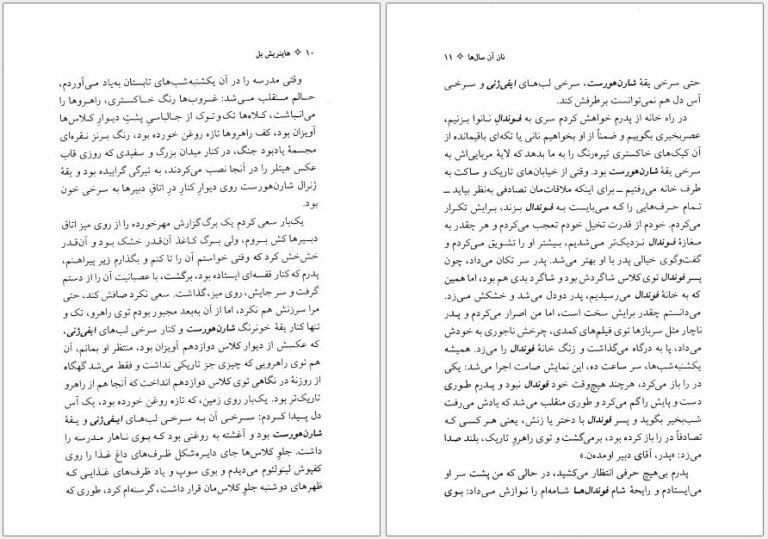 ۱۰ ✧ هاینریش بل
وقتی مدرسه را در آن یکشنبه‌شب‌های تابستان به‌یاد می‌آوردم،
حالم منقلب می‌شد: غروب‌ها رنگ خاکستری، راهروها را
می‌انباشت، کلاه‌ها تک‌وتوک از جالباسیِ پشتِ دیوارِ کلاس‌ها
آویزان بود، کف راهروها تازه روغن خورده بود، رنگ برنز نقره‌ای
مجسمهٔ یادبود جنگ، در کنار میدان بزرگ و سفیدی که روزی قاب
عکس هیتلر را در آنجا نصب می‌کردند، به تیرگی گراییده بود و یقهٔ
ژنرال شارن‌هورست روی دیوارِ کنارِ درِ اتاقِ دبیرها به سرخی خون
بود.
یک‌بار سعی کردم یک برگ گزارش مهرخورده را از روی میز اتاق
دبیرها کش بروم، ولی برگ کاغذ آن‌قدر خشک بود و آن‌قدر
خش‌خش کرد که وقتی خواستم آن را تا کنم و بگذارم زیر پیراهنم،
پدرم که کنار قفسه‌ای ایستاده بود، برگشت، با عصبانیت آن را از دستم
گرفت و سر جایش، روی میز، گذاشت. سعی نکرد صافش کند، حتی
مرا سرزنش هم نکرد، اما از آن به‌بعد مجبور بودم توی راهرو، تک و
تنها کنار یقهٔ خونرنگ شارن‌هورست و کنار سرخی لب‌های ایفی‌ژنی،
که عکسش از دیوار کلاس دوازدهم آویزان بود، منتظر او بمانم، آن
هم توی راهرویی که چیزی جز تاریکی نداشت و فقط می‌شد گهگاه
از روزنهٔ در نگاهی توی کلاس دوازدهم انداخت که آنجا هم از راهرو
تاریک‌تر بود. یک‌بار روی زمین، که تازه روغن خورده بود، یک آس
دل پیدا کردم: سرخی آن به سرخی لب‌های ایفی‌ژنی و یقهٔ
شارن‌هورست بود و آغشته به روغنی بود که بوی ناهار مدرسه را
داشت. جلوِ کلاس‌ها جای دایره‌شکل ظرف‌های داغ غذا را روی
کفپوش لینولئوم می‌دیدم و بوی سوپ و یاد ظرف‌های غذایی که
ظهرهای دوشنبه جلوِ کلاس‌مان قرار داشت، گرسنه‌ام کرد، طوری که
نان آن سال‌ها ✧ ۱۱
حتی سرخی یقهٔ شارن‌هورست، سرخی لب‌های ایفی‌ژنی و سرخی
آس دل هم نمی‌توانست برطرفش کند.
در راه خانه از پدرم خواهش کردم سری به فوندالِ نانوا بزنیم،
عصربخیری بگوییم و ضمناً از او بخواهیم نانی یا تکه‌ای باقیمانده از
آن کیک‌های خاکستری تیره‌رنگ را به ما بدهد که لایهٔ مربایی‌اش به
سرخی یقهٔ شارن‌هورست بود. وقتی از خیابان‌های تاریک و ساکت به
طرف خانه می‌رفتیم ــ برای اینکه ملاقات‌مان تصادفی به‌نظر بیاید ــ
تمام حرف‌هایی را که می‌بایست به فوندال بزند، برایش تکرار
می‌کردم. خودم از قدرت تخیل خودم تعجب می‌کردم و هر چقدر به
مغازهٔ فوندال نزدیک‌تر می‌شدیم، بیشتر او را تشویق می‌کردم و
گفت‌وگوی خیالی پدر با او بهتر می‌شد. پدر سر تکان می‌داد، چون
پسر فوندال توی کلاس شاگردش بود و شاگرد بدی هم بود، اما همین
که به خانهٔ فوندال می‌رسیدیم، پدر دودل می‌شد و خشکش می‌زد.
می‌دانستم چقدر برایش سخت است، اما من اصرار می‌کردم و پدر
ناچار مثل سربازها توی فیلم‌های کمدی، چرخش ناجوری به خودش
می‌داد، پا به درگاه می‌گذاشت و زنگ خانهٔ فوندال را می‌زد. همیشه
یکشنبه‌شب‌ها، سر ساعت ده، این نمایش صامت اجرا می‌شد: یکی
در را باز می‌کرد، هرچند هیچ‌وقت خود فوندال نبود و پدرم طوری
دست و پایش را گم می‌کرد و طوری منقلب می‌شد که یادش می‌رفت
شب‌بخیر بگوید و پسر فوندال یا دختر یا زنش، یعنی هر کسی که
تصادفاً در را باز کرده بود، برمی‌گشت و توی راهروِ تاریک، بلند صدا
می‌زد: «پدر، آقای دبیر اومده‌ن.»
پدرم بی‌هیچ حرفی انتظار می‌کشید، در حالی که من پشت سر او
می‌ایستادم و رایحهٔ شام فوندال‌ها شامه‌ام را نوازش می‌داد: بوی